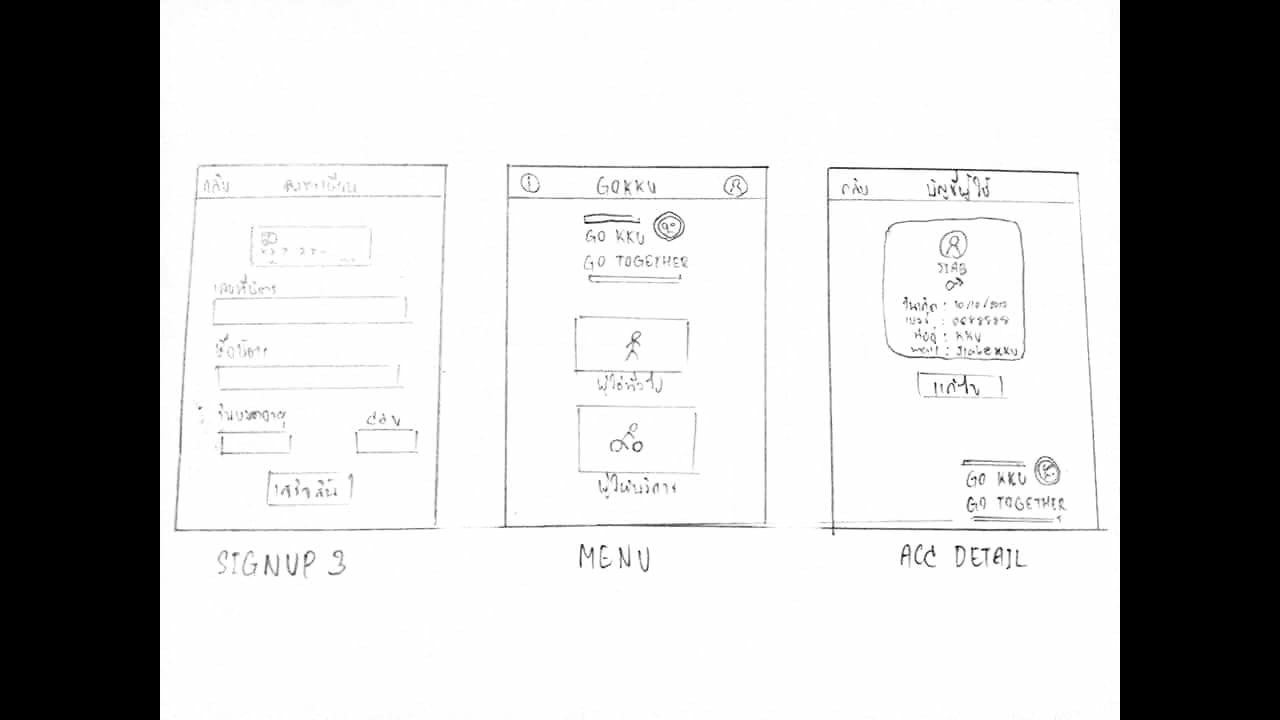 กลับ ลงทะเบียน
เลขที่บัตร
ชื่อบัตร
วันหมดอายุ
เสร็จสิ้น
SIGNUP 3
i GOKKU
GO KKU
GO TOGETHER
ผู้ใช้ทั่วไป
ผู้ให้บริการ
MENU
กลับ บัญชีผู้ใช้
วันเกิด :
เบอร์ :
ที่อยู่ : KKU
แก้ไข
GO KKU
GO TOGETHER
ACC DETAIL